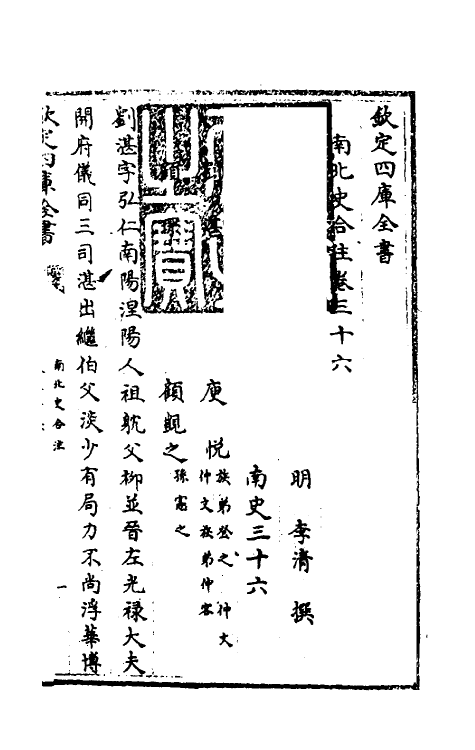 欽定四庫全書
南北史合注卷三十六
明 李清 撰
南史三十六
庾悦族弟登之 仲文
仲文族弟仲容
顧覬之孫憲之
劉湛字弘仁南陽涅陽人祖耽父柳並晉左光禄大夫
開府儀同三司湛出繼伯父淡少有局力不尚浮華博
欽定四庫全書
南北史合注
一